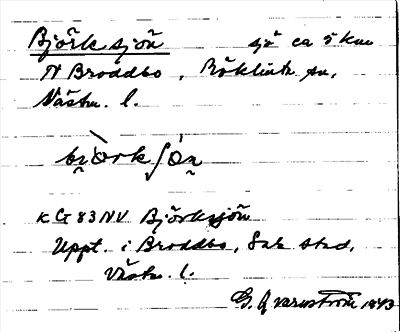 Björksjön sjö ca 5 km
N Broddbo, Röklinta sn,
Västm. l.
bi̯òrkʃón̯
KG 83 NV Björksjön
Uppt. i Broddbo, Sala stad,
Västm. l.
G. Qvarnström 1943